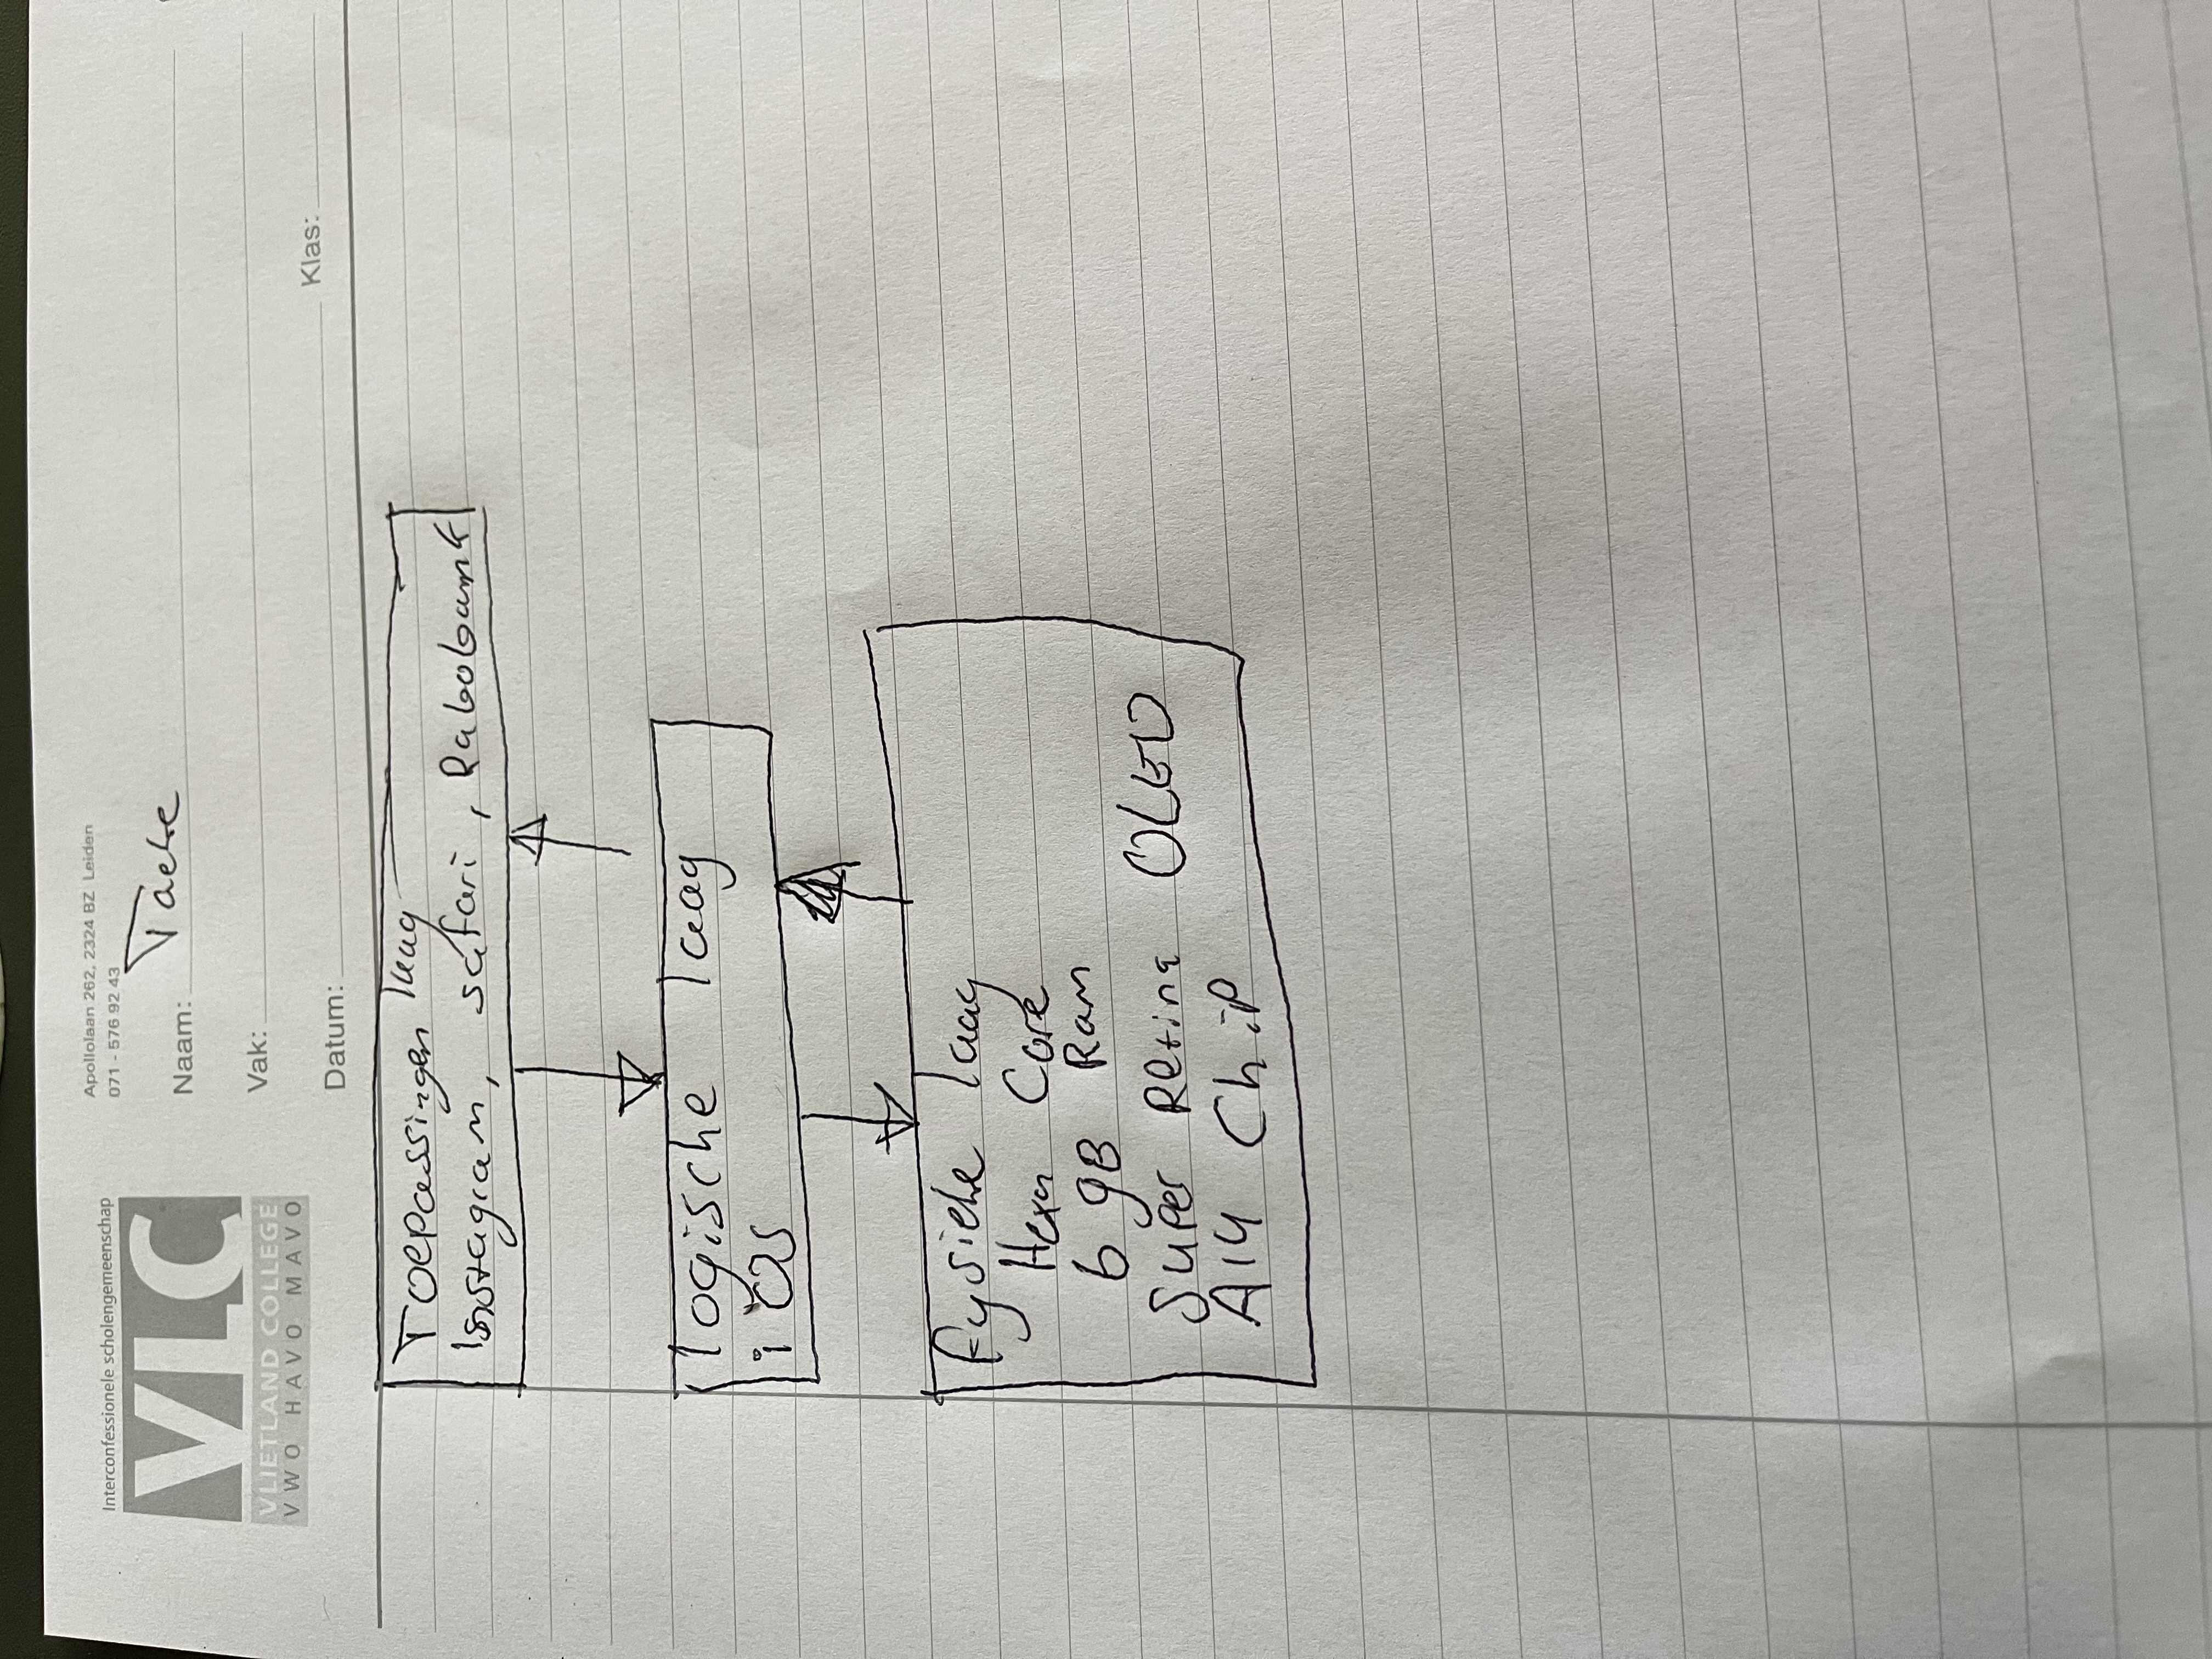 Interconfessionele scholengemeenschap
VLC
VLIETLAND COLLEGE
VWO HAVO MAVO
Apollolaan 262, 2324 BZ Leiden
071 - 576 92 43
Naam: Taeke
Vak:
Datum:
Klas:
Toepassingen laag
Instagram, safari, Rabobank
logische laag
iOS
fysieke laag
Hexa Core
6 gB Ram
Super Retina OLED
A14 Chip